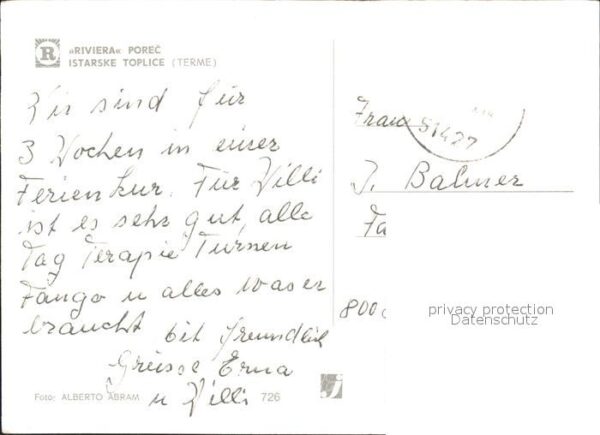 »RIVIERA« POREČ
ISTARSKE TOPLICE (TERME)
Wir sind für
3 Wochen in einer
Ferienkur. Für Willi
ist es sehr gut, alle
Tag Terapie Turnen
Fango u alles was er
braucht
Mit freundlich
Grüsse Erna
u Willi
Foto: ALBERTO ABRAM
726
Frau
51427
J. Balmer
Fa
800
privacy protection
Datenschutz